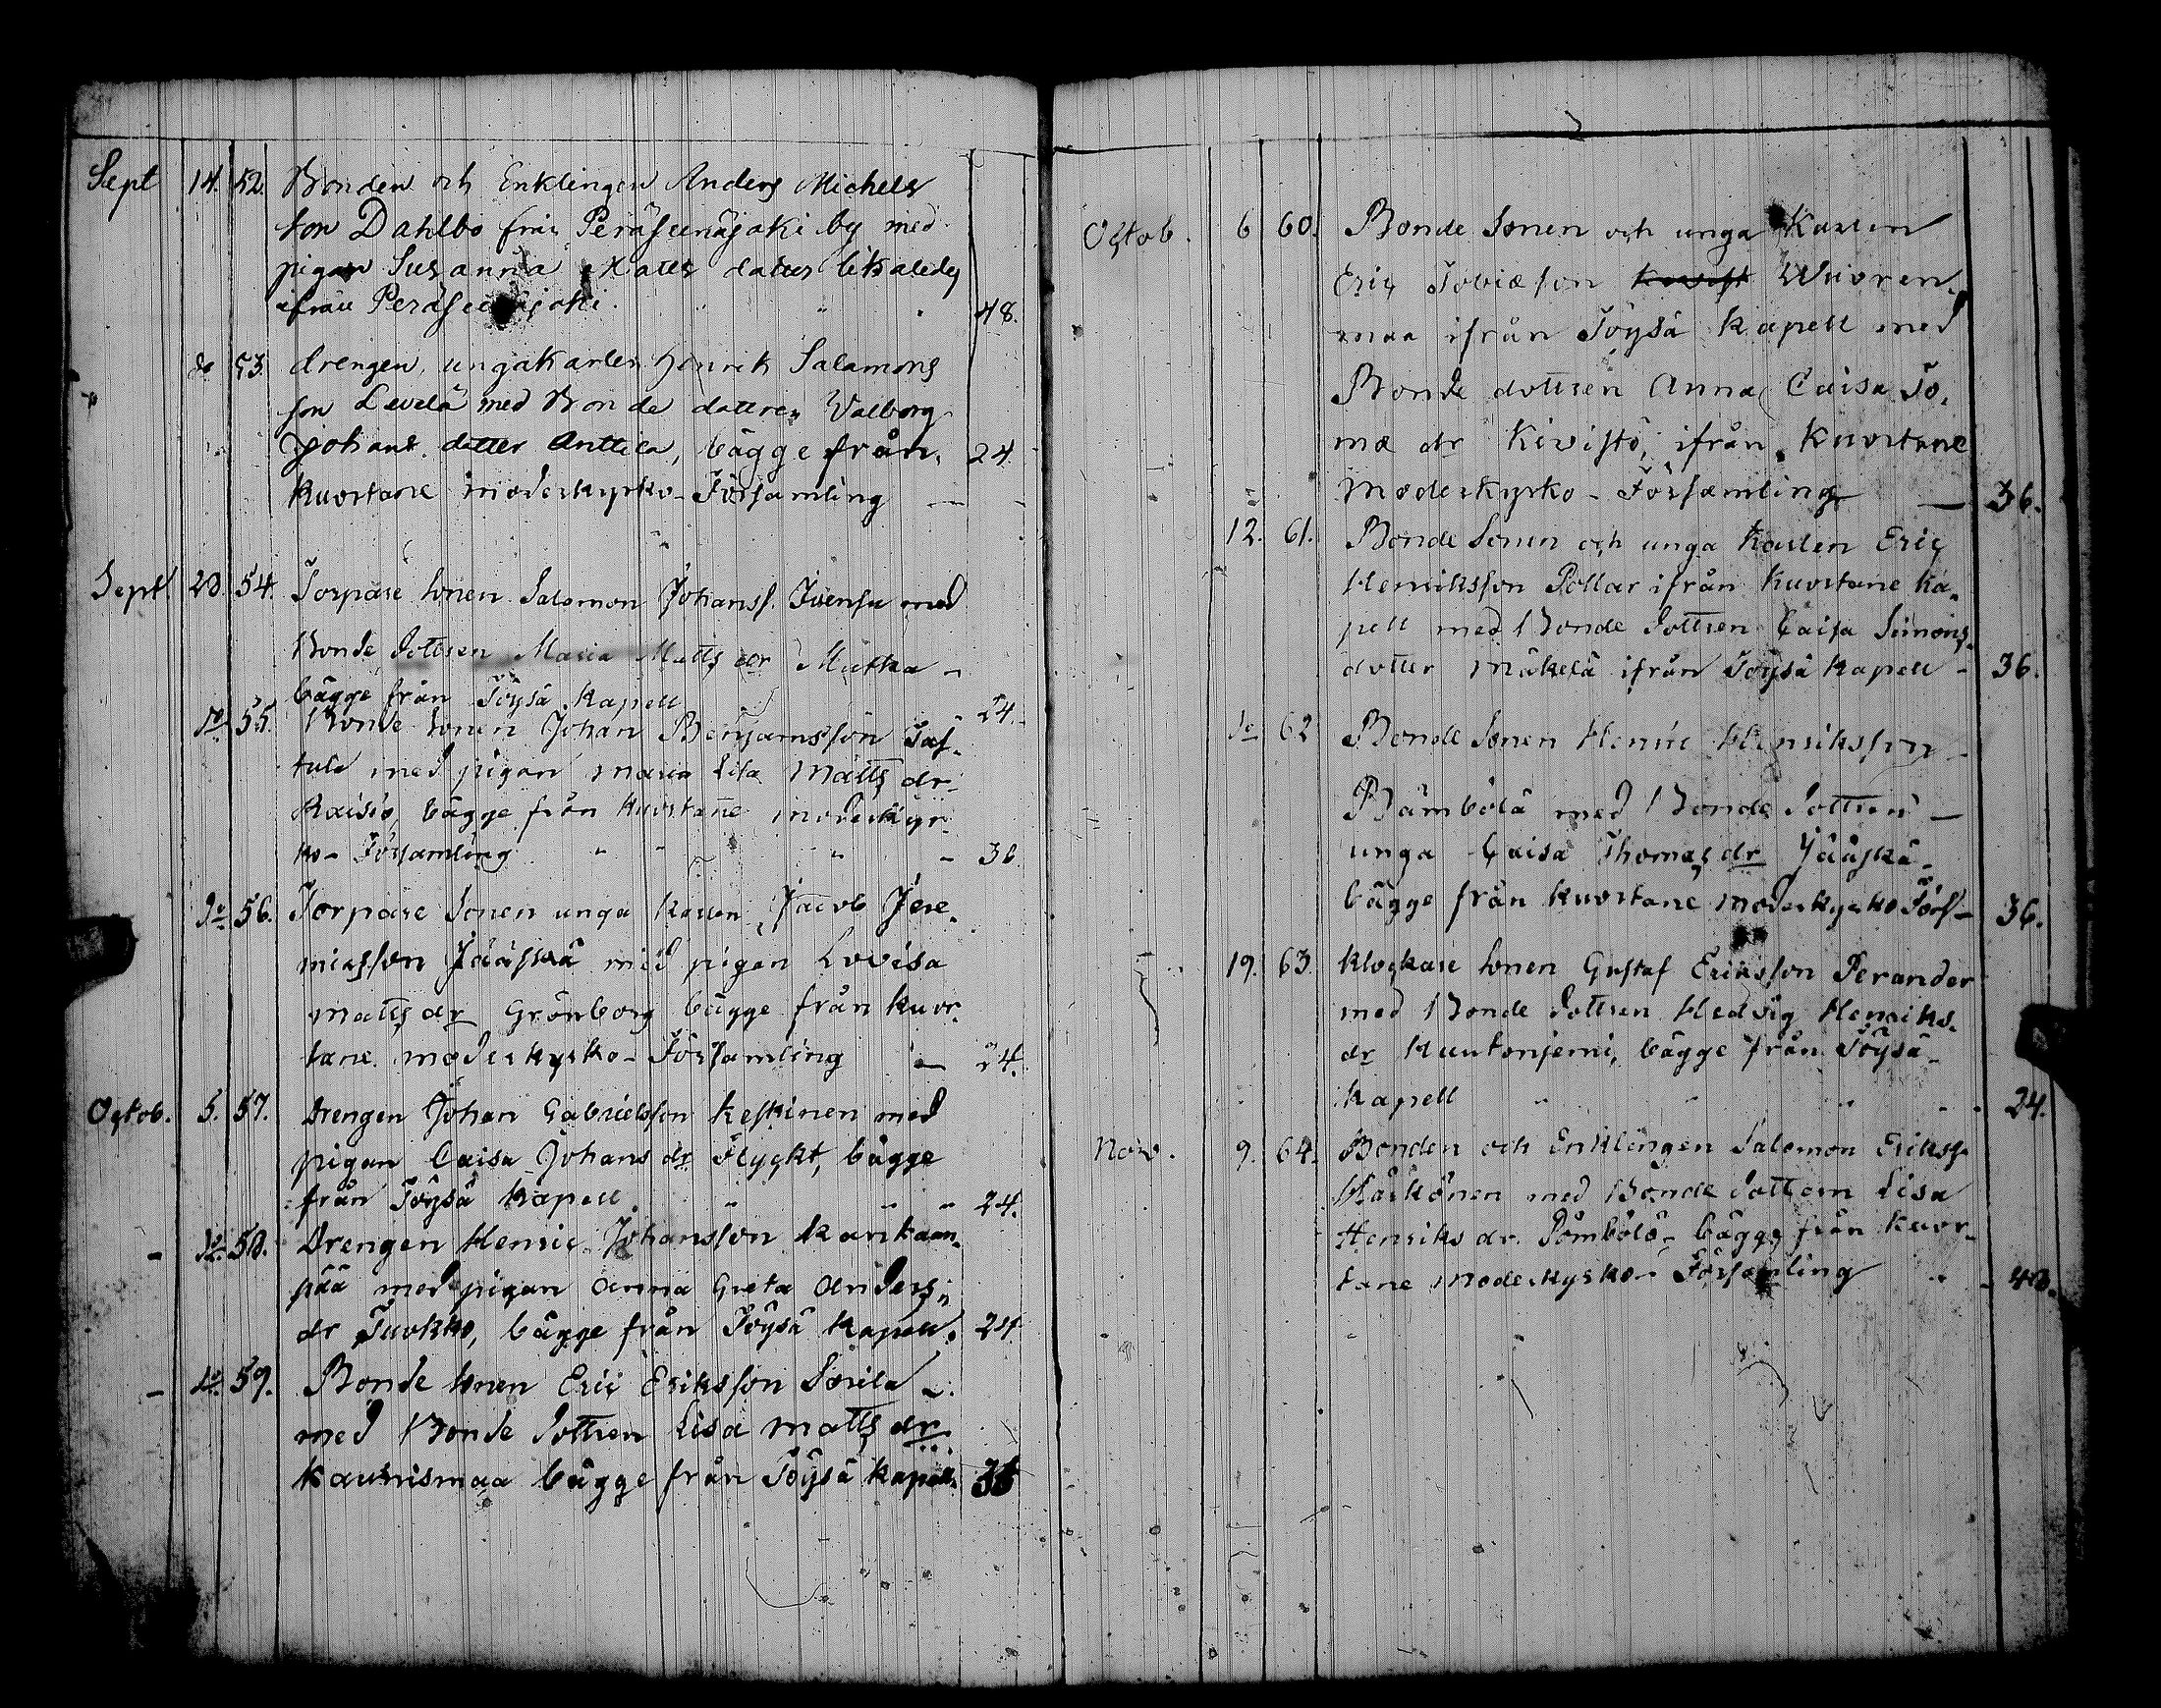 Sept 14. 52. Bonden och Enklingen Anders Michels
son Dahlbo från Peräseinäjoki by med
pigan Susanna Matts datter likaledes
ifrån Peräseinäjoki. 48.
do 53. drengen, ungakarlen Henrik Salamons
son Levelä med Bonde dattren Walborg
Johans datter Anttila, bägge från 24.
Kuortane moderkyrko-Församling —
Sept. 28. 54. Torpare sonen Salomon Johanss. med
Bonde dottren Maria Matts dr Mutka –
bägge från Töysä Kapell 24.
do 55. Bonde sonen Johan Benjamsson Tas-
tula med pigan Maria Lisa Matts dr
Raisio, bägge från Kuortane moderkyr-
ko-Församling " " " – 36
do 56. Torpare sonen unga Karlen Jacob Jere-
miasson Jääskä med pigan Lovisa
Matts dr Grönborg bägge från Kuor-
tane moderkyrko-Församling — 24.
Octob. 5. 57. Drengen Johan Gabrielsson Keskinen med
pigan Caisa Johans dr Flyckt, bägge
från Töysä Kapell " " " 24.
– do 58. Drengen Henric Johansson Kankaan-
pää med pigan Anna Greta Anders
dr Tuokko, bägge från Töysä Kapell. 24
– do 59. Bonde sonen Eric Eriksson Sorila –
med Bonde dottren Lisa Matts dr
Kauhismaa bägge från Töysä Kapell. 36
Octob. 6 60. Bonde Sonen och unga Karlen
Eric Tobiæson Wuoren-
maa ifrån Töysä Kapell med
Bonde dottren Anna Caisa To-
mæ dr Kivistö, ifrån Kuortane
Moderkyrko-Församling — 36.
12. 61. Bonde Sonen och unga Karlen Eric
Henriksson Pollar ifrån Kuortane Ka-
pell med Bonde dottren Caisa Simons
dotter Mäkelä ifrån Töysä Kapell – 36.
do 62 Bonde Sonen Henric Henriksson –
Pämbölä med Bonde dottren —
unga Caisa Thomas dr Jääskä –
bägge från Kuortane moderkyrko Förs– 36.
19. 63. Klockare sonen Gustaf Eriksson Perander
med Bonde dottren Hedvig Henriks-
dr Kuutonjemi, bägge från Töysä –
Kapell " " " 24.
Nov. 9. 64. Bonden och Enklingen Salomon Erikss.
Härkönen med Bonde dottern Lisa
Henriks dr. Pömbölö – bägge från Kuor-
tane Moderkyrko-Församling " – 48.